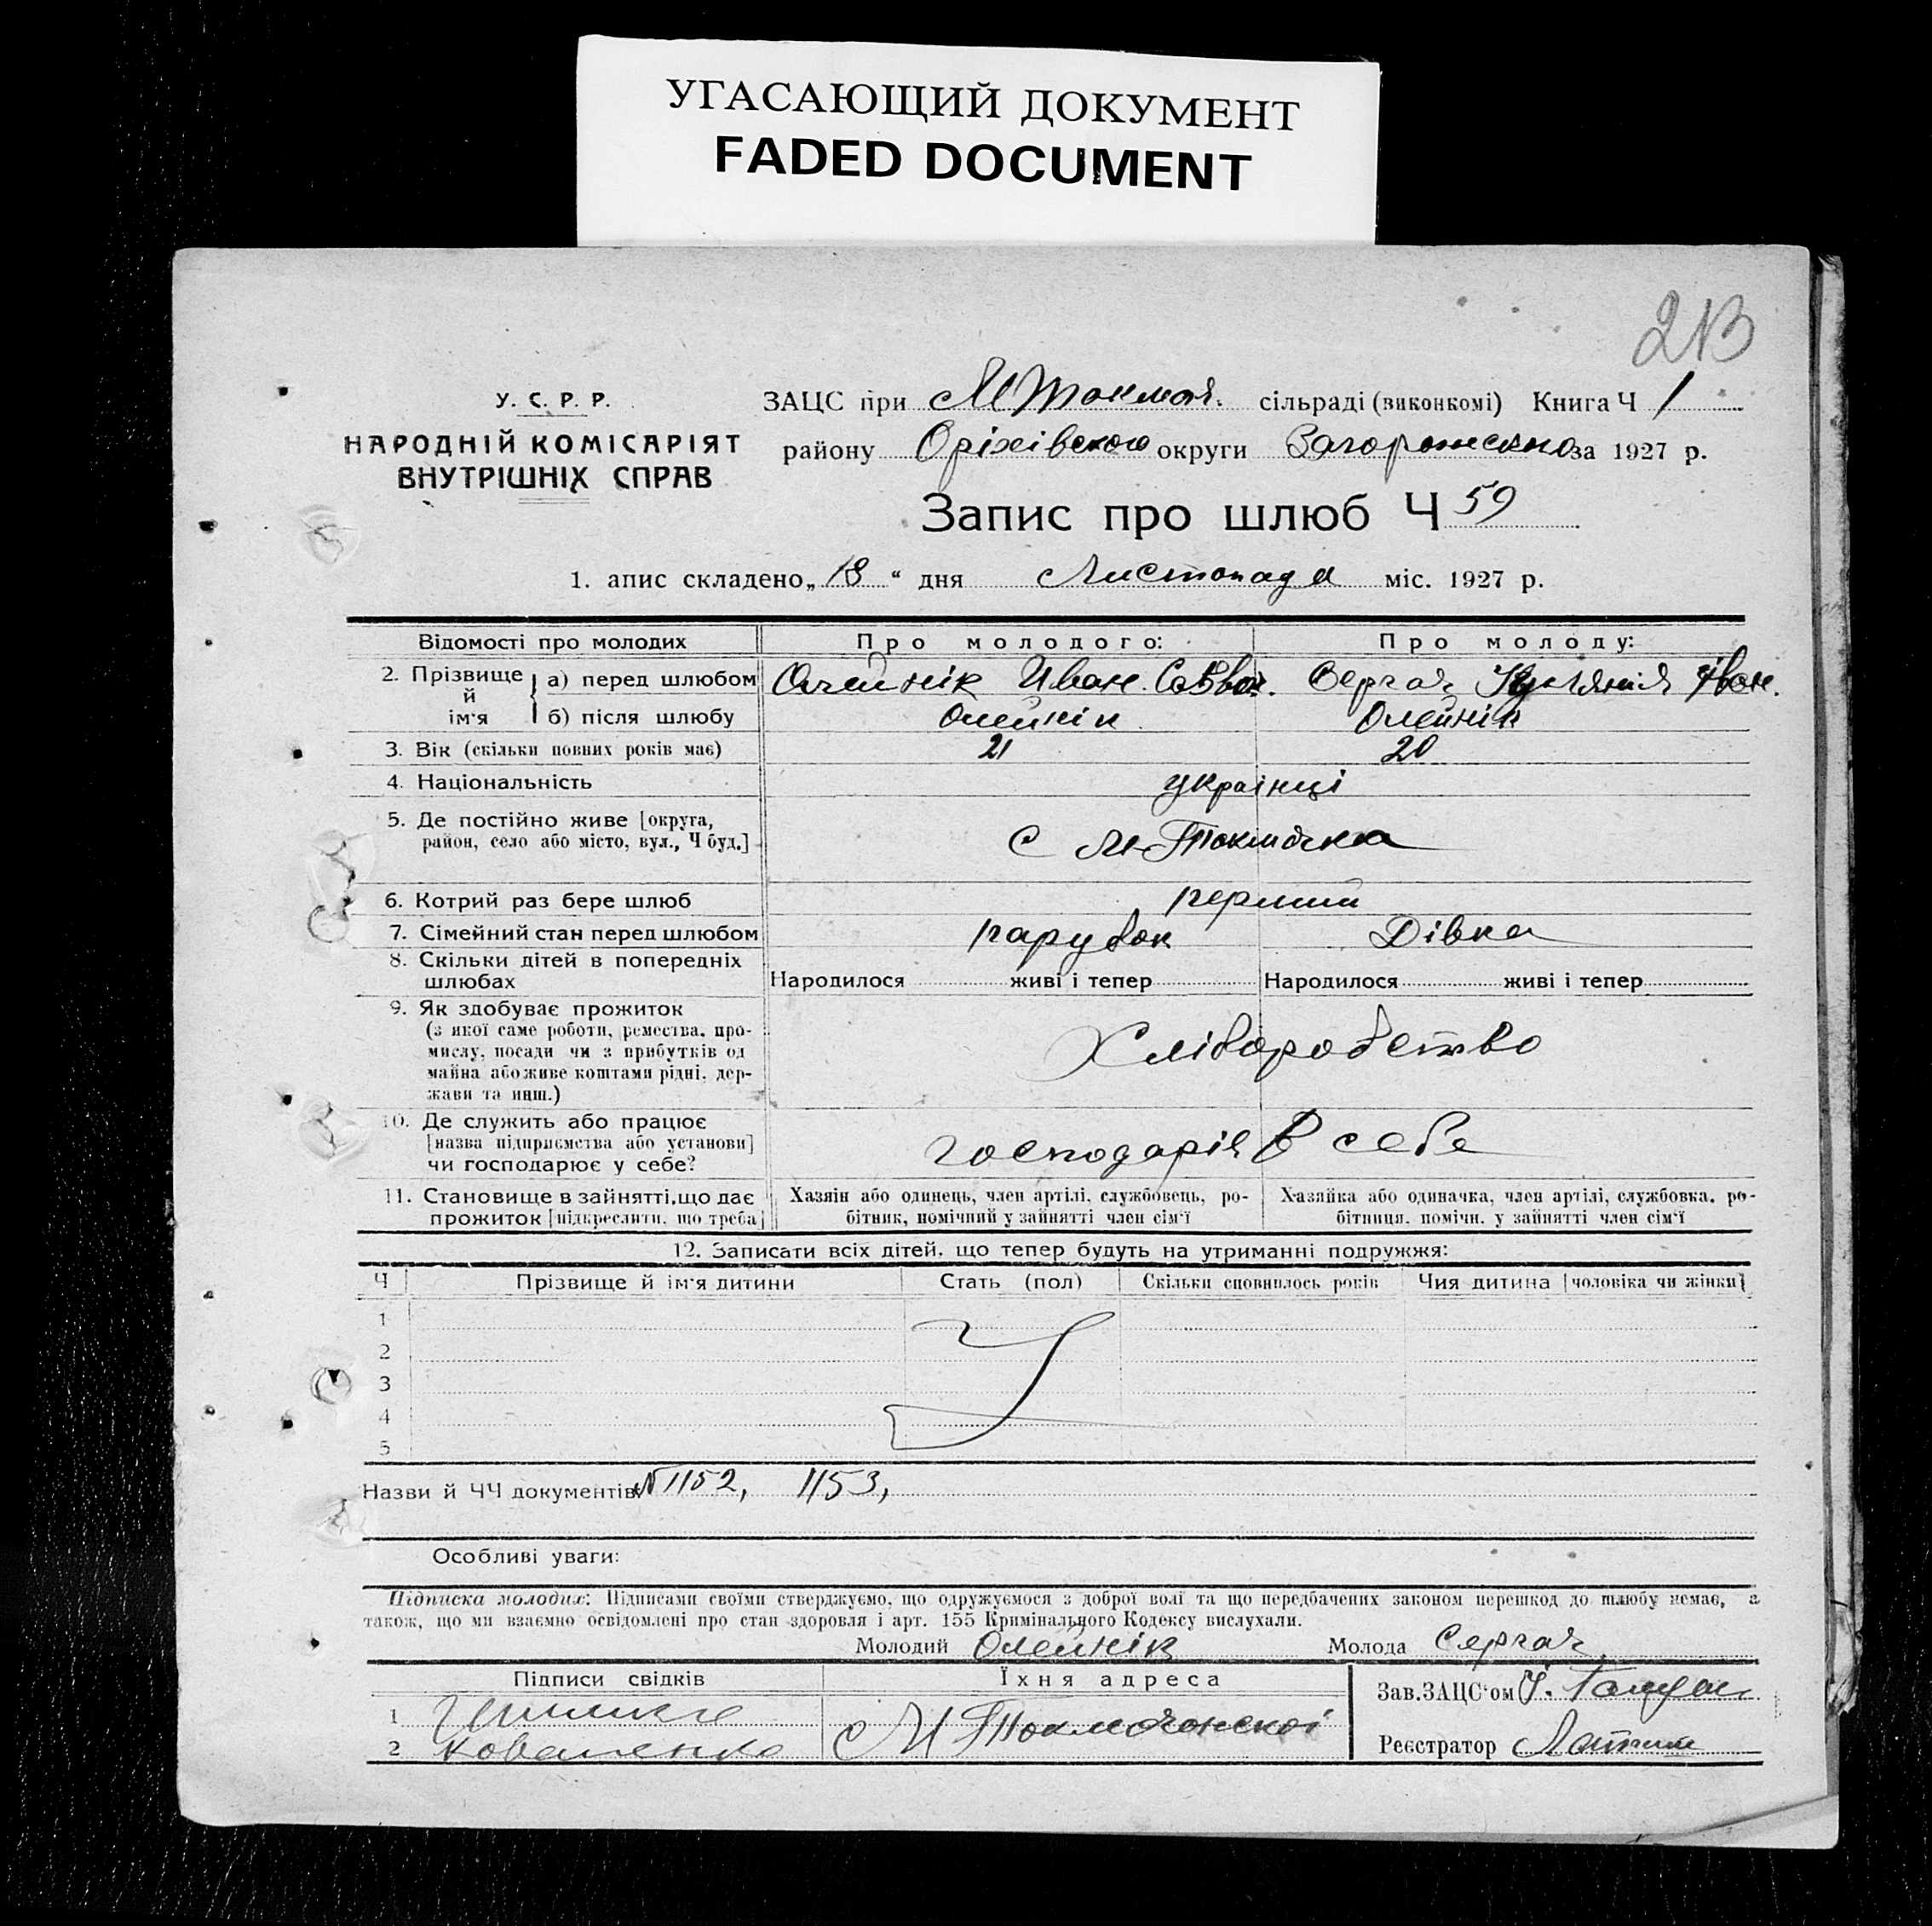 УГАСАЮЩИЙ ДОКУМЕНТ
FADED DOCUMENT
213
У. С. Р. Р.
НАРОДНІЙ КОМІСАРІЯТ
ВНУТРІШНІХ СПРАВ
ЗАЦС при М Токмач. сільраді (виконкомі) Книга Ч 1
району Оріхівского округи Запорожскпо за 1927 р.
Запис про шлюб Ч 59
1. апис складено „ 18 “ дня Листопада міс. 1927 р.
Відомості про молодих Про молодого: Про молоду:
2. Прізвище й ім'я а) перед шлюбом Олейнік Иван Савво. Сергач Івон.
б) після шлюбу Олейнік Олейнік
3. Вік (скільки повних років має) 21 20
4. Національність українці
5. Де постійно живе [округа,
район, село або місто, вул., Ч буд.] С М-Токмачка
6. Котрий раз бере шлюб перший
7. Сімейний стан перед шлюбом парубок Дівка
8. Скільки дітей в попередніх
шлюбах Народилося живі і тепер Народилося живі і тепер
9. Як здобуває прожиток
(з якої саме роботи, ремества, про-
мислу, посади чи з прибутків од
майна або живе коштами рідні, дер-
жави та инш.) Хліборобство
10. Де служить або працює
[назва підприємства або установи]
чи господарює у себе? господарія в себе
11. Становище в зайнятті, що дає Хазяїн або одинець, член артілі, службовець, ро- Хазяйка або одиначка, член артілі, службовка, ро-
прожиток [підкреслити, що треба] бітник, помічний у зайнятті член сім'ї бітниця, помічн. у зайнятті член сім'ї
12. Записати всіх дітей, що тепер будуть на утриманні подружжя:
Ч Прізвище й ім'я дитини Стать (пол) Скільки сповнилось років Чия дитина [чоловіка чи жінки]
1
2
3
4
5
Назви й ЧЧ документів N 1152, 1153,
Особливі уваги:
Підписка молодих: Підписами своїми стверджуємо, що одружуємося з доброї волі та що передбачених законом перешкод до шлюбу немає, а
також, що ми взаємно освідомлені про стан здоровля і арт. 155 Кримінального Кодексу вислухали.
Молодий Олейнік Молода Сергач
Підписи свідків Їхня адреса Зав.ЗАЦС'ом
1
2 Коваленко М Токмачанскоі Реєстратор